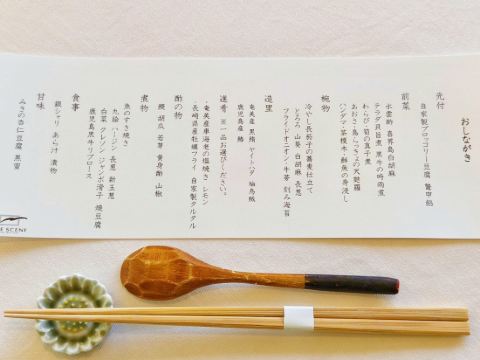 おしながき
先付
自家製ブロッコリー豆腐 鼈甲餡
前菜
水雲酢 喜界島白胡麻
テラダ貝旨煮 黒牛の時雨煮
わらび 筍の真子煮
あおさ・島らっきょの天麩羅
ハンダマ・茶樹木・鮮魚の寿浸し
椀物
冷やし長茄子の蕎麦仕立て
とろろ 山葵 白胡麻 長葱
フライドオニオン・牛蒡 刻み海苔
造里
奄美産 黒鮪 ソイトバタ 軸烏賊
鹿児島産 鰆
進肴 ※一品お選びください。
・奄美産車海老の塩焼き レモン
・長崎県産牡蠣フライ 自家製タルタル
酢の物
鰻 胡瓜 若芽 黄身酢 山椒
煮物
魚のすき焼き
九絵 ハージン 長葱 新玉葱
白菜 クレソン ジャンボ滑子 焼豆腐
鹿児島黒牛リブロース
食事
銀シャリ あらけ 漬物
甘味
みきの杏仁豆腐 黒蜜
E SCENE